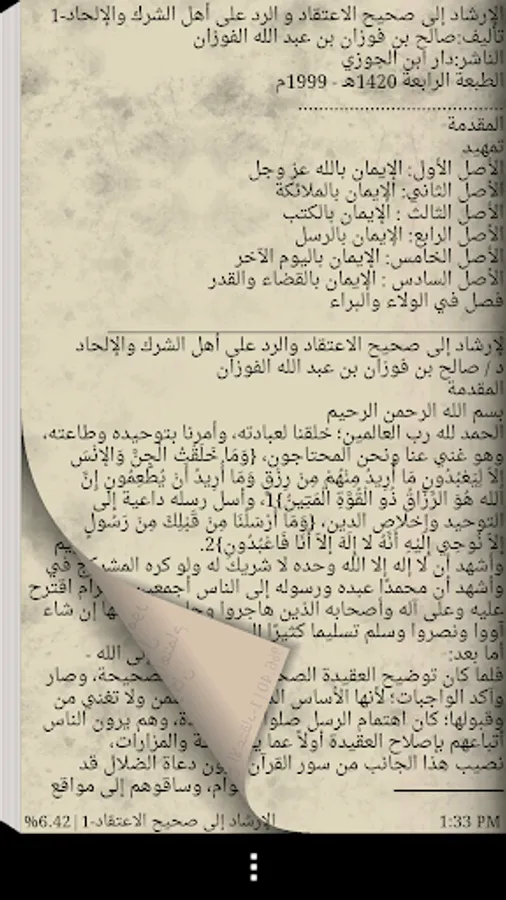 الإرشاد إلى صحيح الاعتقاد و الرد على أهل الشرك والإلحاد-1
تأليف:صالح بن فوزان بن عبد الله الفوزان
الناشر:دار ابن الجوزي
الطبعة الرابعة 1420هـ - 1999م
المقدمة
تمهيد
الأصل الأول: الإيمان بالله عز وجل
الأصل الثاني: الإيمان بالملائكة
الأصل الثالث : الإيمان بالكتب
الأصل الرابع: الإيمان بالرسل
الأصل الخامس: الإيمان باليوم الآخر
الأصل السادس : الإيمان بالقضاء والقدر
فصل في الولاء والبراء
لإرشاد إلى صحيح الاعتقاد والرد على أهل الشرك والإلحاد
د / صالح بن فوزان بن عبد الله الفوزان
المقدمة
بسم الله الرحمن الرحيم
الحمد لله رب العالمين؛ خلقنا لعبادته، وأمرنا بتوحيده وطاعته،
وهو غني عنا ونحن المحتاجون، {وَمَا خَلَقْتُ الْجِنَّ وَالإِنْسَ
إِلاَّ لِيَعْبُدُونِ مَا أُرِيدُ مِنْهُمْ مِنْ رِزْقٍ وَمَا أُرِيدُ أَنْ يُطْعِمُونِ إِنَّ
الله هُوَ الرَّزَّاقُ ذُو الْقُوَّةِ الْمَتِينُ}1، وأسل رسله داعية إلى
التوحيد وإخلاص الدين، {وَمَا أَرْسَلْنَا مِنْ قَبْلِكَ مِنْ رَسُولٍ
إِلاَّ نُوحِي إِلَيْهِ أَنَّهُ لا إِلَهَ إِلاَّ أَنَا فَاعْبُدُونِ}2.
وأشهد أن لا إله إلا الله وحده لا شريك له ولو كره المشرك ج في
وأشهد أن محمدًا عبده ورسوله إلى الناس أجمعين اقترح
عليه وعلى آله وأصحابه الذين هاجروا إن شاء
آووا ونصروا وسلم تسليما كثيرًا
أما بعد: لى الله -
فلما كان توضيح العقيدة حيحة، وصار
وآكد الواجبات؛ لأنها الأساس ولا تغني من
وقبولها؛ كان اهتمام الرسل وهم يرون الناس
أتباعهم بإصلاح العقيدة أولاً عما والمزارات،
نصيب هذا الجانب من سور القرآن دعاة الضلال قد
وام، وساقوهم إلى مواقع
%6.42 | الإرشاد إلى صحيح الاعتقاد-1 1:33 PM